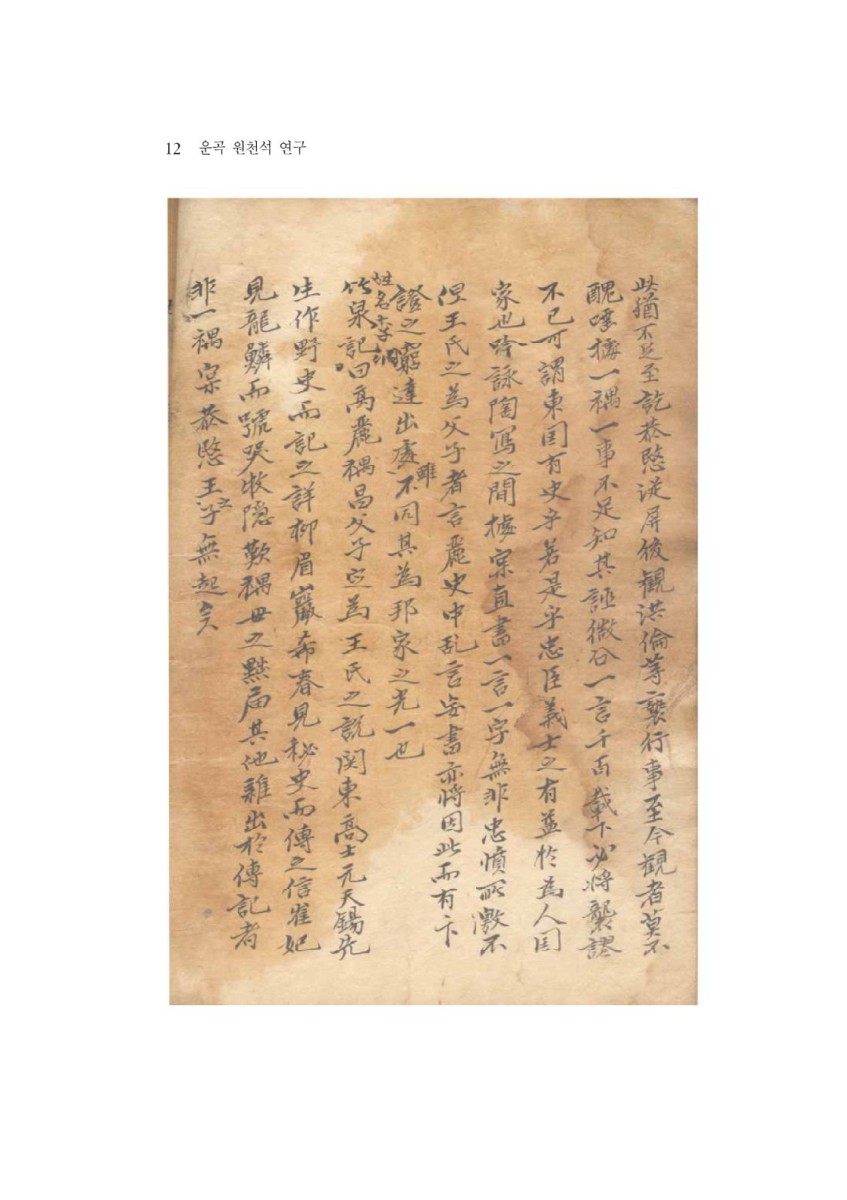 12 운곡 원천석 연구
此猶不足至訖恭愍從屏後觀洪倫等褻行事至今觀者莫不
醜唾擧一禑一事不足知其誣微谷一言千百載下必將襲謬
不已可謂東国有史乎若是乎忠臣義士之有益於為人国
家也吟詠陶寫之間據宲直書一言一字無非忠憤所激不
但王氏之為父子者言麗史中乱言妄書亦將因此而有卞
證之窮達出處雖不同其為邦家之光一也
姓名李
竹泉記曰高麗禑昌父子定為王氏之說関東高士元天錫先
生作野史而記之詳柳眉巖希春見秘史而傳之信崔妃
見龍鱗而號哭牧隐歎禑世之黜届其他雜出於傳記者
非一禑宲恭愍王之子無起矣